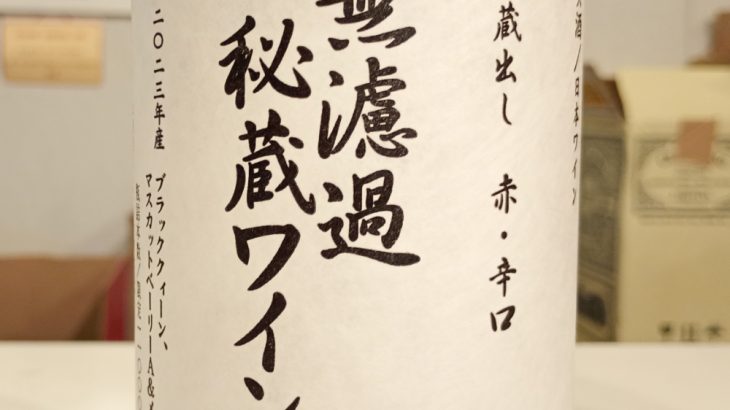 酒/日本ワイン
蔵出し 赤・辛口
無濾過
秘蔵ワイン
二〇二三年産
ブラッククィーン、
マスカットベーリーA&メ